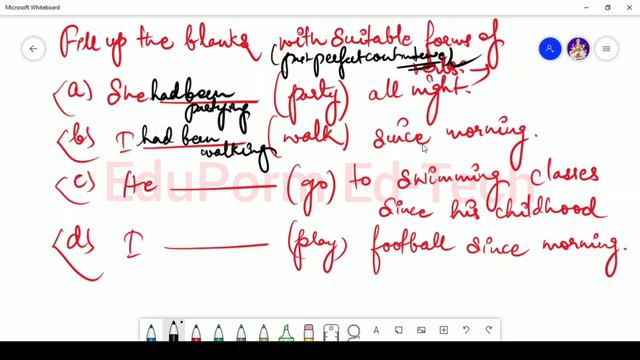 Microsoft Whiteboard
Fill up the blanks with suitable forms of
(past perfect continuous) verbs.
(a) She had been partying (party) all night.
(b) I had been walking (walk) since morning.
(c) He ______ (go) to swimming classes
since his childhood
(d) I ______ (play) football since morning.
EduPorm Ed-Tech